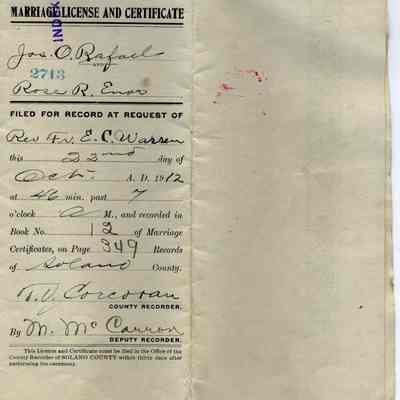 MARRIAGE LICENSE AND CERTIFICATE
INDEX
Jos. O. Rafael
AND
2713
Rose R. Enos
FILED FOR RECORD AT REQUEST OF
Rev Fr. E. C. Warren
this 22nd day of
Oct. A. D. 1912
at 46 min. past 7
o'clock A M., and recorded in
Book No. 12 of Marriage
Certificates, on Page 349 Records
of Solano County.
Corcoran
COUNTY RECORDER.
By M. McCarron
DEPUTY RECORDER.
This License and Certificate must be filed in the Office of the
County Recorder of SOLANO COUNTY within thirty days after
performing the ceremony.